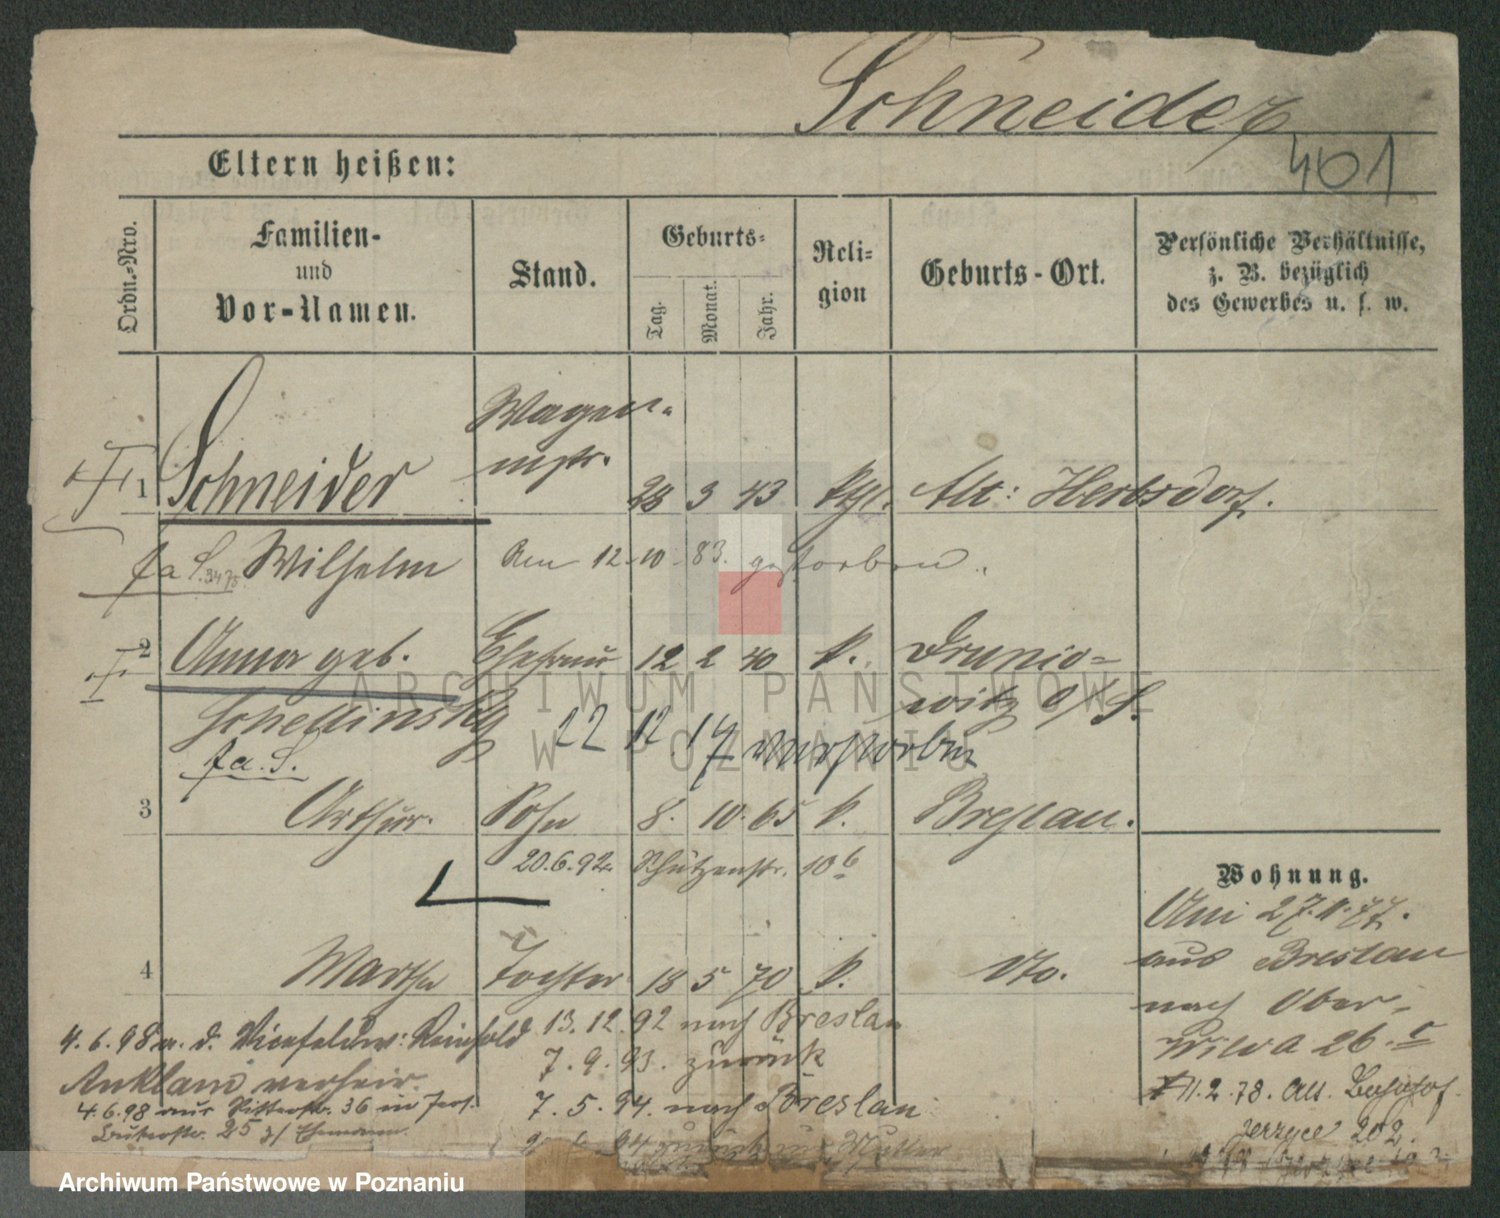 Schneider
401
Eltern heißen:
Ordn.=Nro.
Familien-
und
Vor-Namen.
Stand.
Geburts=
Tag.
Monat.
Jahr.
Reli=
gion
Geburts-Ort.
Persönliche Verhältnisse,
z. B. bezüglich
des Gewerbes u. s. w.
Wagen-
mstr.
1 Schneider 28 3 43 Alt: Herbsdorf.
fa S. Wilhelm Am 12.10.83. gestorben.
2 Anna geb. Ehefrau 12 2 40 k. Drunio=
witz O/S.
Schellinsky 22 12 17 verstorben
fa. S.
3 Arthur. Sohn 8. 10. 65 k. Breslau.
20.6.92. Schützenstr. 10 b
Wohnung.
Am 27.11.77.
aus Breslau
nach Ober-
Wilda 26.
4 Martha Tochter 18 5 70 k. dto.
4.6.98 m. d. Vicefeldw: Reinhold
Anklam verheir.
4.6.98 aus Ritterstr. 36 in
25 z/ Ehemann.
13.12.92 nach Breslau
7.9.93. zurück
7.5.94. nach Breslau
94 zurück zur Mutter
11.2.78. Alt. Bahnhof.
Jerzyce 202.
ARCHIWUM PAŃSTWOWE
W POZNANIU
Archiwum Państwowe w Poznaniu